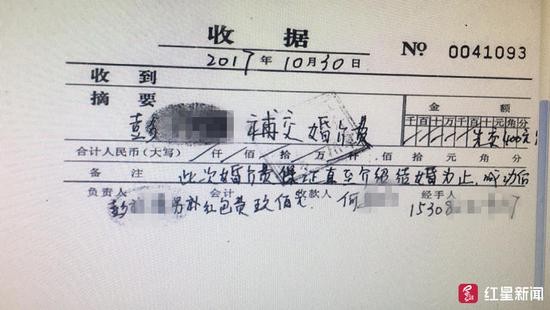 收据 № 0041093
2017年10月30日
收到
摘要 金额
千百十万千百十元角分
彭 补交婚介费 先交400元
合计人民币(大写) 仟 佰 拾 万 仟 佰 拾 元 角 分
备注 此次婚介费保证直至介绍结婚为止,成功后
负责人 会计 收款人 经手人
彭 另补红包费玖佰元. 何 15308
红星新闻